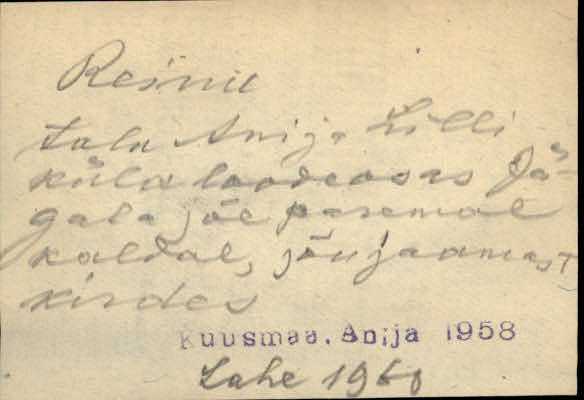 Reinu
talu Anija Lilli
küla loodeosas Jä-
gala jõe paremal
kaldal, jõujaamast
kirdes
Kuusmaa. Anija 1958
Lahe 1960